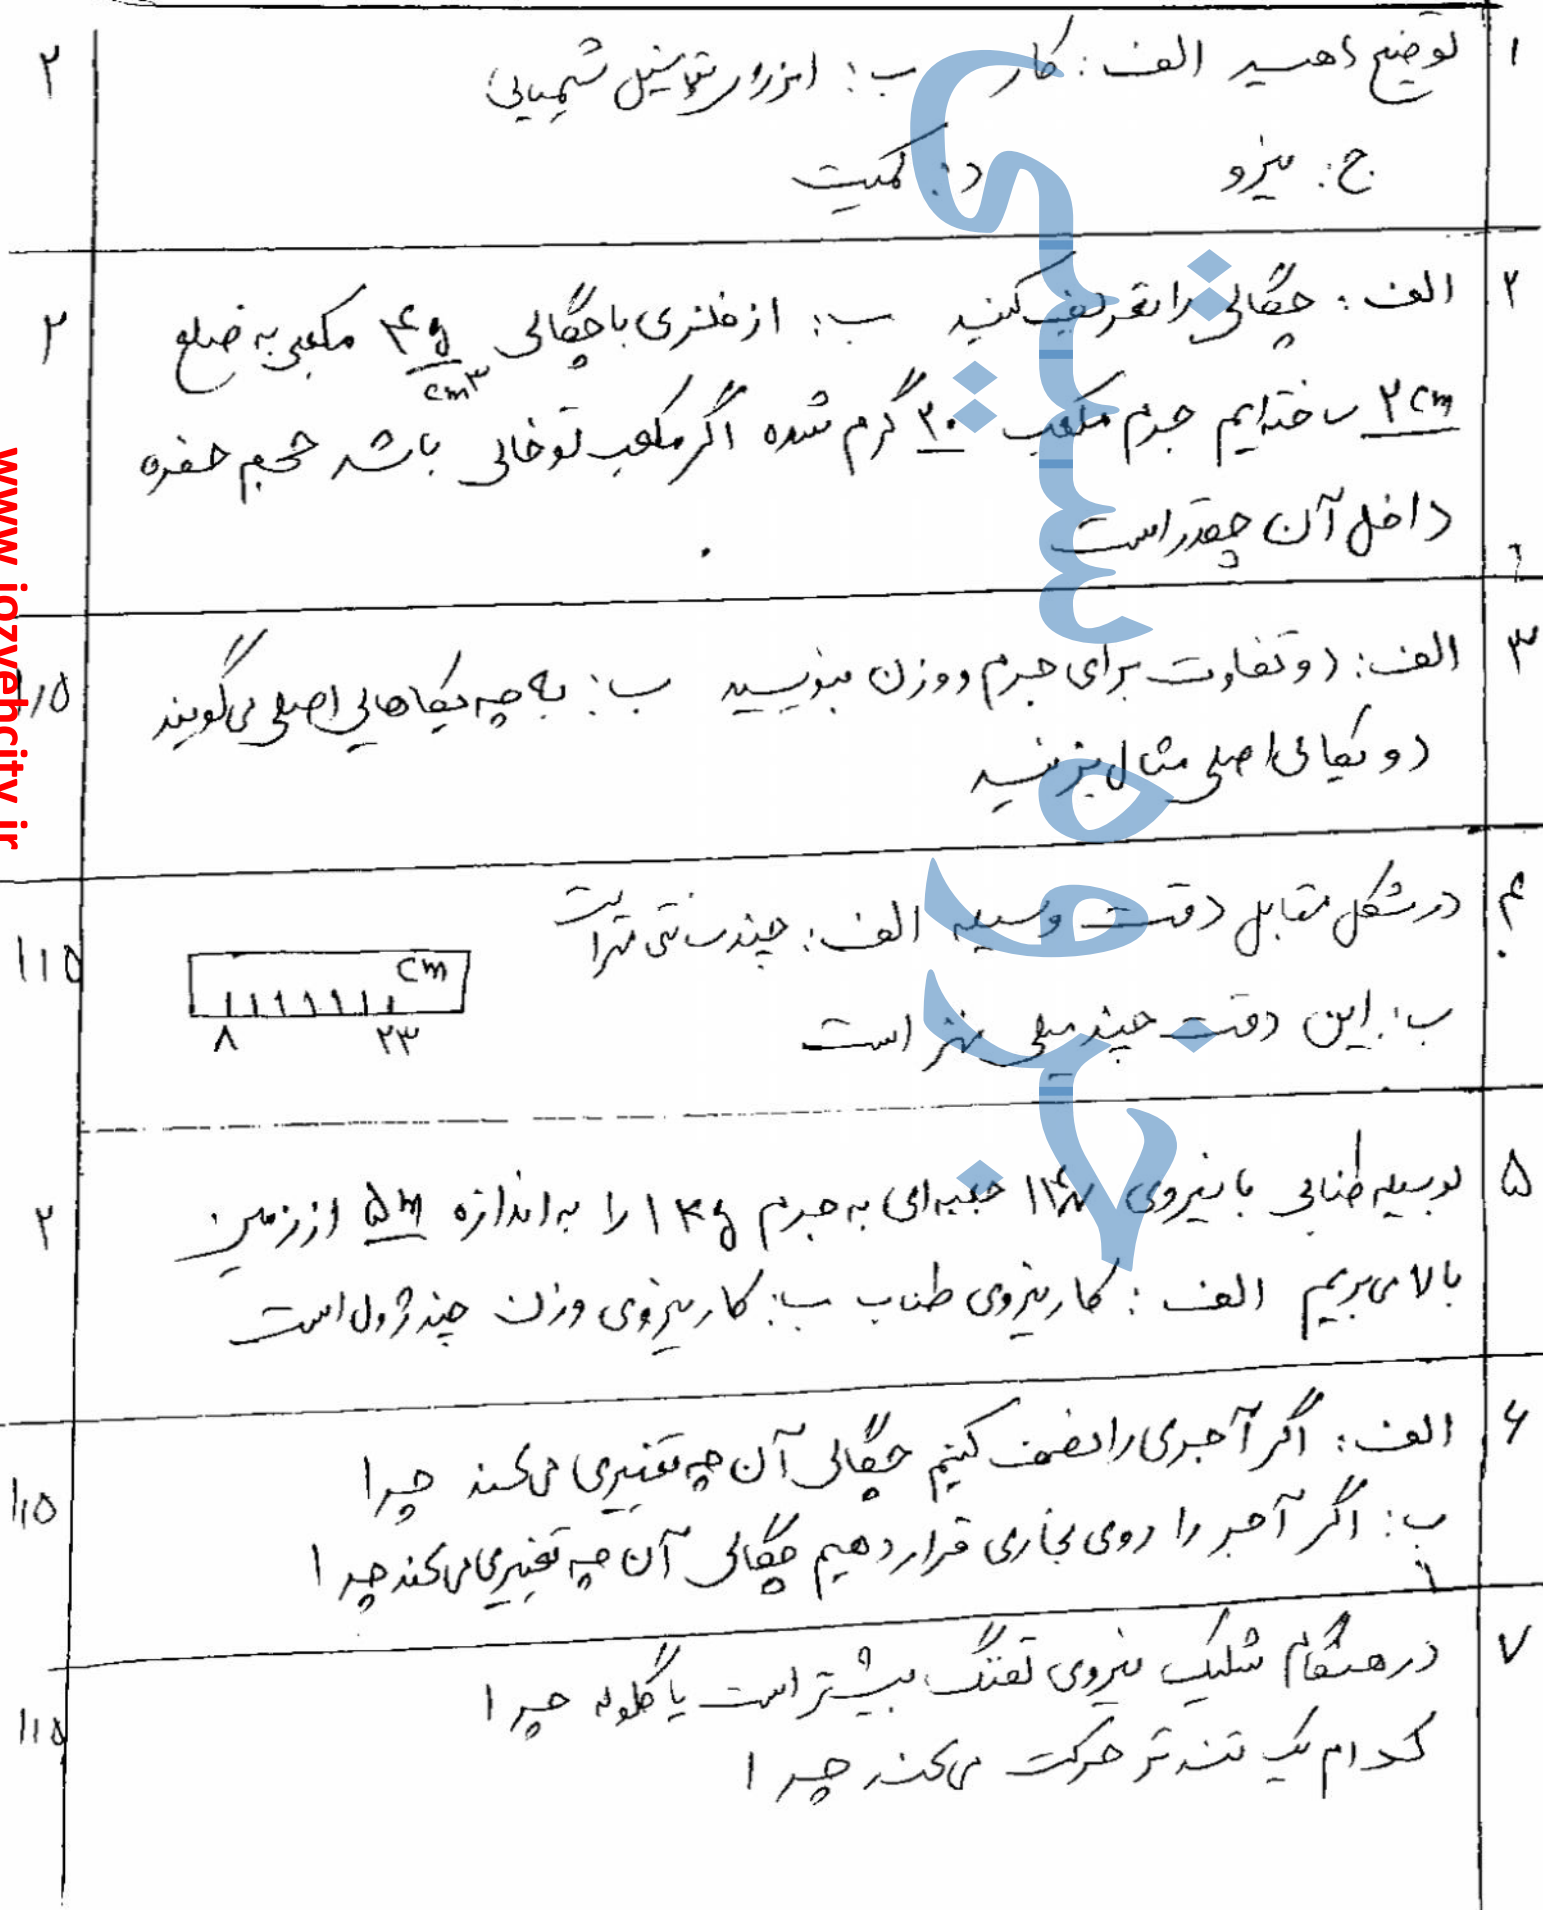 ۱ توضیح دهید الف: کار ب: انرژی پتانسیل شیمیایی ۲
ج: نیرو د: کمیت
۲ الف: چگالی را تعریف کنید ب: از فلزی با چگالی ۴ g/cm۳ مکعبی به ضلع ۲
۲cm ساخته‌ایم جرم مکعب ۲۰ گرم شده اگر مکعب توخالی باشد حجم حفره
داخل آن چقدر است
۳ الف: دو تفاوت برای جرم و وزن بنویسید ب: به چه یکاهایی اصلی می‌گویند ۱/۵
دو یکای اصلی مثال بزنید
۴ در شکل مقابل دقت وسیله الف: چند سانتی متر است ۱/۵
cm
۸ ۲۳
ب: این دقت چند میلی متر است
۵ بوسیله طنابی با نیروی ۱۴N جعبه‌ای به جرم ۱kg را به اندازه ۵m از زمین ۲
بالا می‌بریم الف: کار نیروی طناب ب: کار نیروی وزن چند ژول است
۶ الف: اگر آجری را نصف کنیم چگالی آن چه تغییری می‌کند چرا ۱/۵
ب: اگر آجر را روی بخاری قرار دهیم چگالی آن چه تغییری می‌کند چرا
۷ در هنگام شلیک نیروی تفنگ بیشتر است یا گلوله چرا ۱/۵
کدام یک تندتر حرکت می‌کند چرا
جزوه سیتی
www.jozvehcity.ir